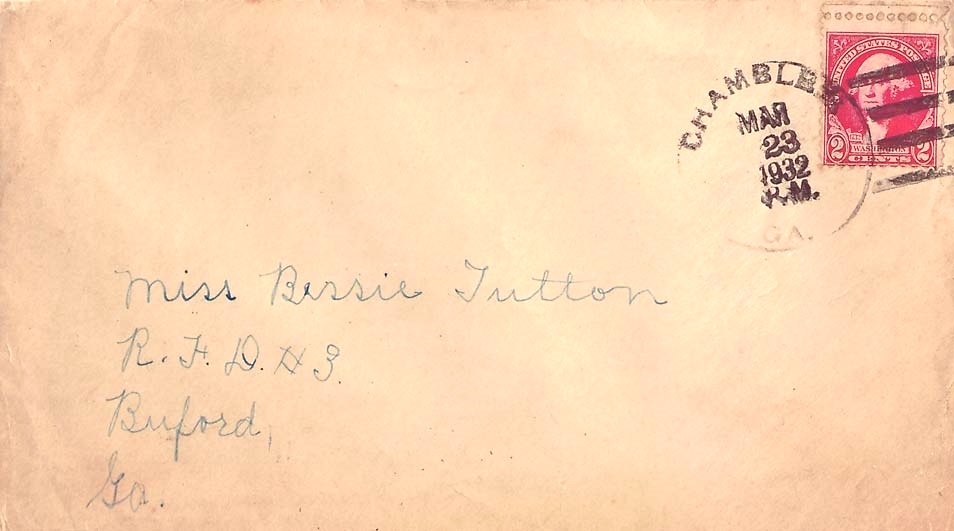 UNITED STATES POSTAGE
WASHINGTON
2 CENTS 2
CHAMBLEE
MAR
23
1932
P.M.
GA.
Miss Bessie Tutton
R.F.D. #3.
Buford,
Ga.